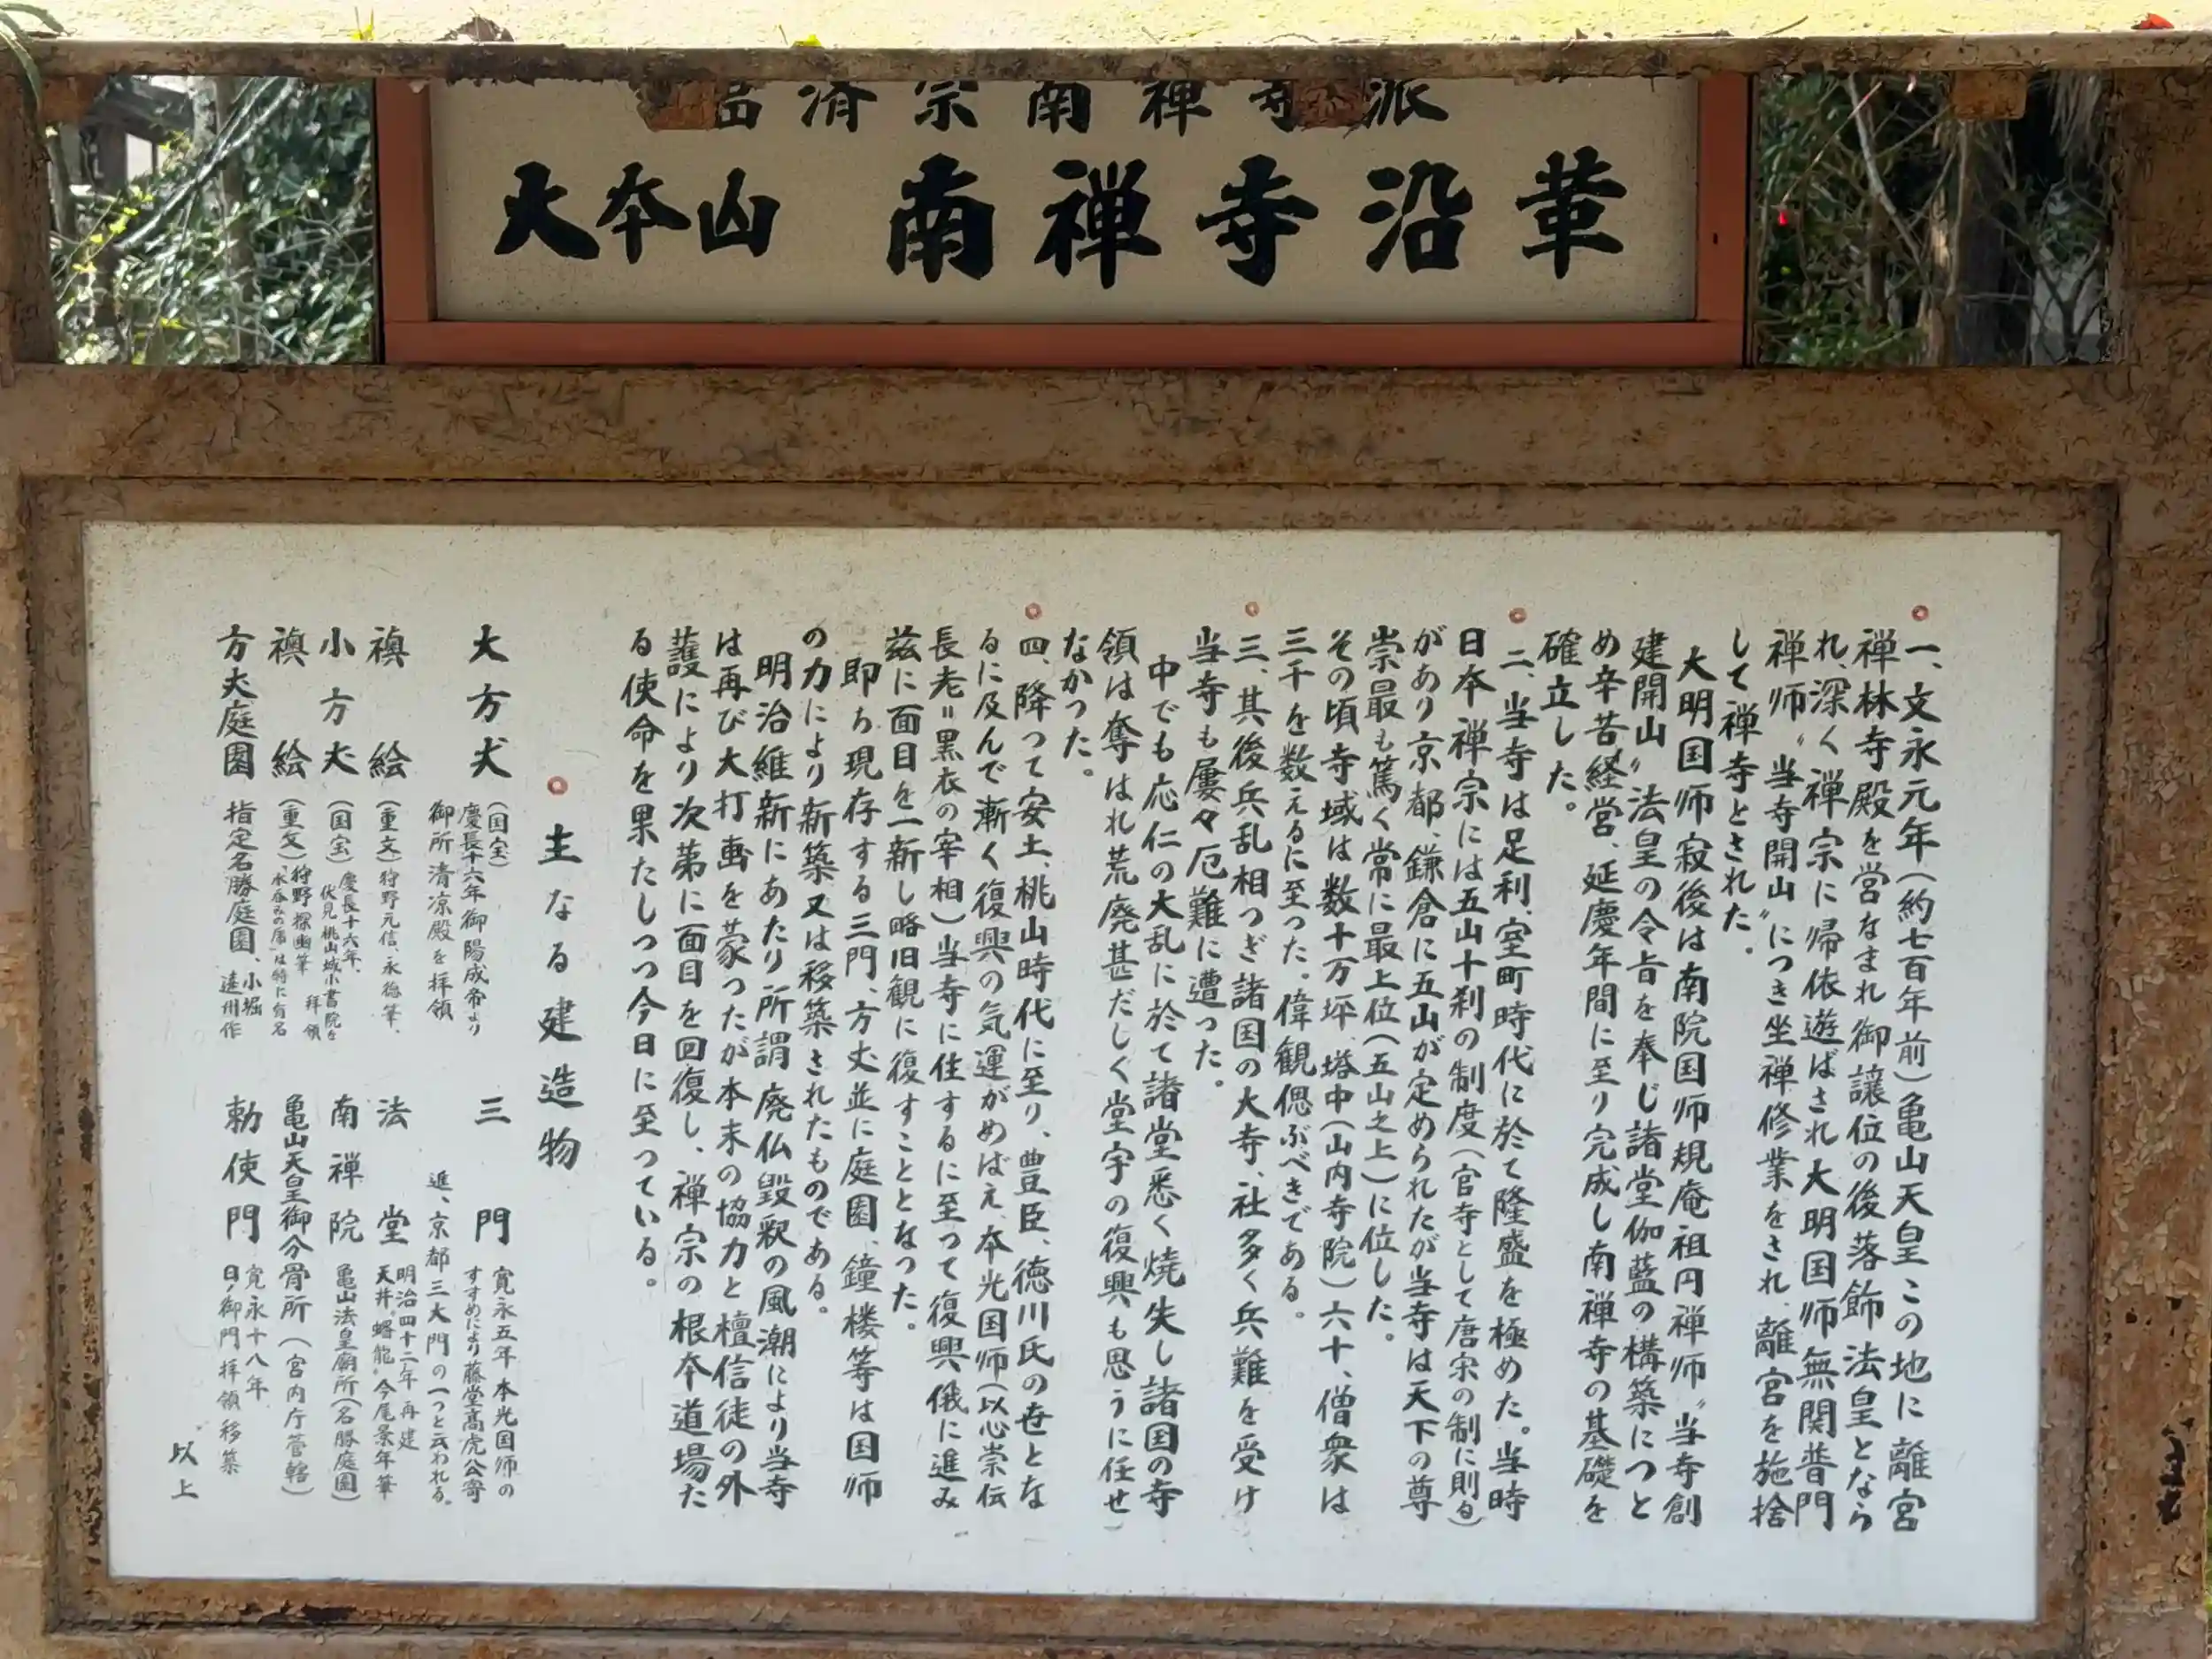 臨済宗南禅寺派
大本山 南禅寺沿革
一、文永元年(約七百年前)亀山天皇この地に離宮
禅林寺殿を営なまれ御譲位の後落飾法皇となら
れ、深く禅宗に帰依遊ばされ大明国師無関普門
禅師〝当寺開山〟につき坐禅修業をされ、離宮を施捨
して禅寺とされた。
大明国師寂後は南院国師規庵祖円禅師〝当寺創
建開山〟法皇の令旨を奉じ諸堂伽藍の構築につと
め辛苦経営、延慶年間に至り完成し南禅寺の基礎を
確立した。
二、当寺は足利、室町時代に於て隆盛を極めた。当時
日本禅宗には五山十刹の制度(官寺として唐宋の制に則る)
があり京都、鎌倉に五山が定められたが当寺は天下の尊
崇最も篤く常に最上位(五山之上)に位した。
その頃寺域は数十万坪、塔中(山内寺院)六十、僧衆は
三千を数えるに至った。偉観偲ぶべきである。
三、其後兵乱相つぎ諸国の大寺、社多く兵難を受け
当寺も屢々厄難に遭った。
中でも応仁の大乱に於て諸堂悉く焼失し諸国の寺
領は奪はれ荒廃甚だしく堂宇の復興も思うに任せ
なかった。
四、降って安土、桃山時代に至り、豊臣、徳川氏の世とな
るに及んで漸く復興の気運がめばえ、本光国師(以心崇伝
長老=黒衣の宰相)当寺に住するに至って復興俄に進み
茲に面目を一新し略旧観に復すこととなった。
即ち現存する三門、方丈並に庭園、鐘楼等は国師
の力により新築又は移築されたものである。
明治維新にあたり所謂廃仏毀釈の風潮により当寺
は再び大打画を蒙ったが本末の協力と檀信徒の外
護により次第に面目を回復し、禅宗の根本道場た
る使命を果たしつつ今日に至っている。
主なる建造物
大方丈 (国宝)
慶長十六年御陽成帝より
御所清凉殿を拝領
襖絵 (重文)狩野元信、永徳筆、
小方丈 (国宝)慶長十六年、
伏見桃山城小書院を
拝領
襖絵 (重文)狩野探幽筆
「水呑みの虎」は特に有名
方丈庭園 指定名勝庭園、小堀
遠州作
三門 寛永五年本光国師の
すすめにより藤堂高虎公寄
進、京都三大門の一つと云われる。
法堂 明治四十二年再建
天井〝蟠龍〟今尾景年筆
南禅院 亀山法皇廟所(名勝庭園)
亀山天皇御分骨所(宮内庁菅轄)
勅使門 寛永十八年
日ノ御門拝領移築
以上